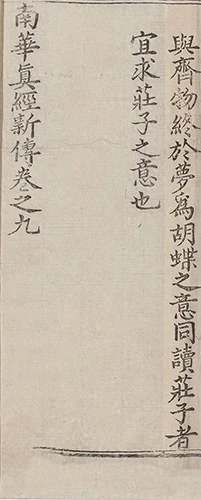 與齊物終於夢爲胡蝶之意同讀莊子者
宜求莊子之意也
南華眞經新傳卷之九